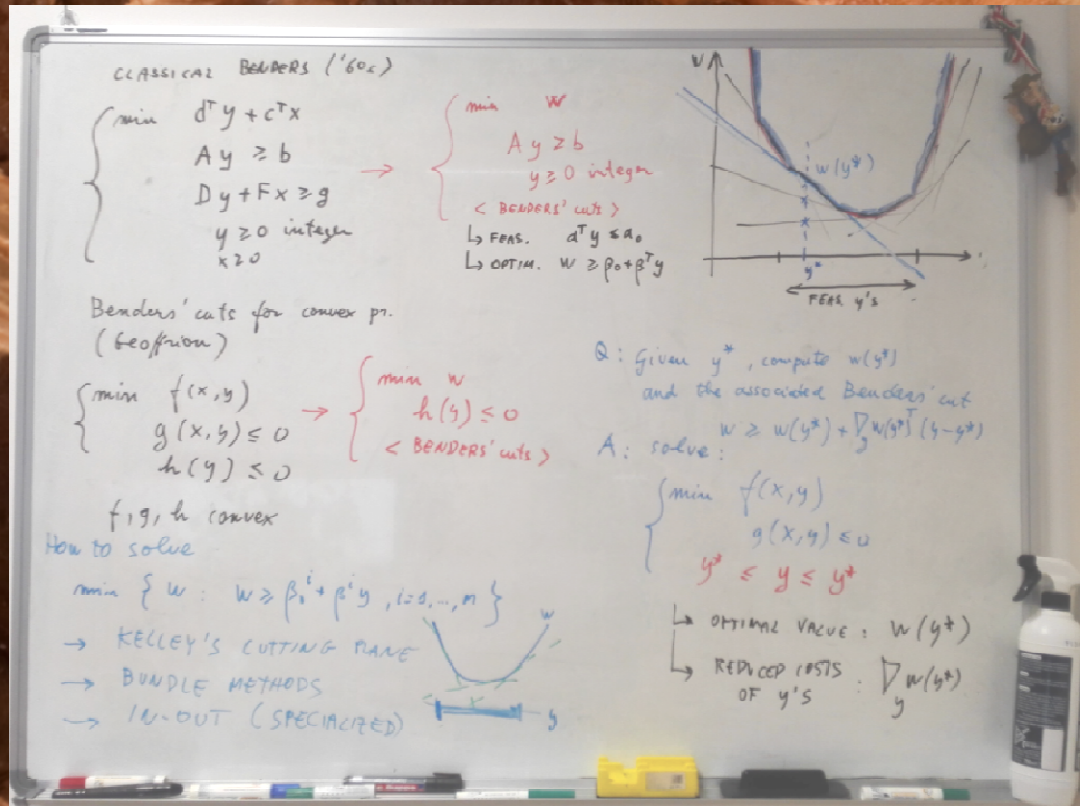 CLASSICAL BENDERS ('60s)
min dᵀy + cᵀx
Ay ≥ b
Dy + Fx ≥ g
y ≥ 0 integer
x ≥ 0
→
min w
Ay ≥ b
y ≥ 0 integer
< BENDERS' cuts >
↳ FEAS. αᵀy ≤ α₀
↳ OPTIM. w ≥ β₀ + βᵀy
w(y*)
y*
FEAS. y's
Benders' cuts for convex pr.
(Geoffrion)
min f(x,y)
g(x,y) ≤ 0
h(y) ≤ 0
f, g, h convex
→
min w
h(y) ≤ 0
< BENDERS' cuts >
How to solve
min { w : w ≥ β₀ⁱ + βⁱy, i=1,...,n }
→ KELLEY'S CUTTING PLANE
→ BUNDLE METHODS
→ IN-OUT (SPECIALIZED)
w
y
Q: Given y*, compute w(y*)
and the associated Benders' cut
w ≥ w(y*) + ∇y w(y*)ᵀ (y-y*)
A: solve:
min f(x,y)
g(x,y) ≤ 0
y* ≤ y ≤ y*
↳ OPTIMAL VALUE : w(y*)
↳ REDUCED COSTS
OF y's : ∇y w(y*)